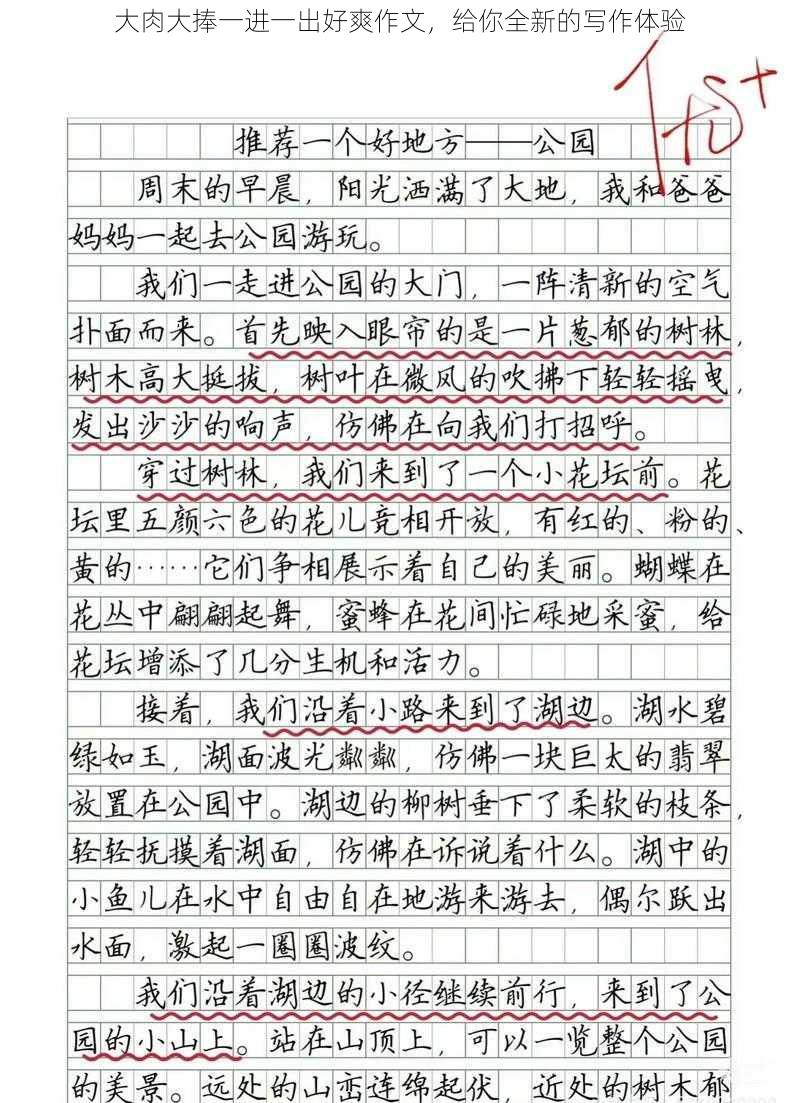 大肉大捧一进一出好爽作文，给你全新的写作体验
优+
推荐一个好地方——公园
周末的早晨，阳光洒满了大地，我和爸爸
妈妈一起去公园游玩。
我们一走进公园的大门，一阵清新的空气
扑面而来。首先映入眼帘的是一片葱郁的树林，
树木高大挺拔，树叶在微风的吹拂下轻轻摇曳，
发出沙沙的响声，仿佛在向我们打招呼。
穿过树林，我们来到了一个小花坛前。花
坛里五颜六色的花儿竞相开放，有红的、粉的、
黄的……它们争相展示着自己的美丽。蝴蝶在
花丛中翩翩起舞，蜜蜂在花间忙碌地采蜜，给
花坛增添了几分生机和活力。
接着，我们沿着小路来到了湖边。湖水碧
绿如玉，湖面波光粼粼，仿佛一块巨太的翡翠
放置在公园中。湖边的柳树垂下了柔软的枝条，
轻轻抚摸着湖面，仿佛在诉说着什么。湖中的
小鱼儿在水中自由自在地游来游去，偶尔跃出
水面，激起一圈圈波纹。
我们沿着湖边的小径继续前行，来到了公
园的小山上。站在山顶上，可以一览整个公园
的美景。远处的山峦连绵起伏，近处的树木郁